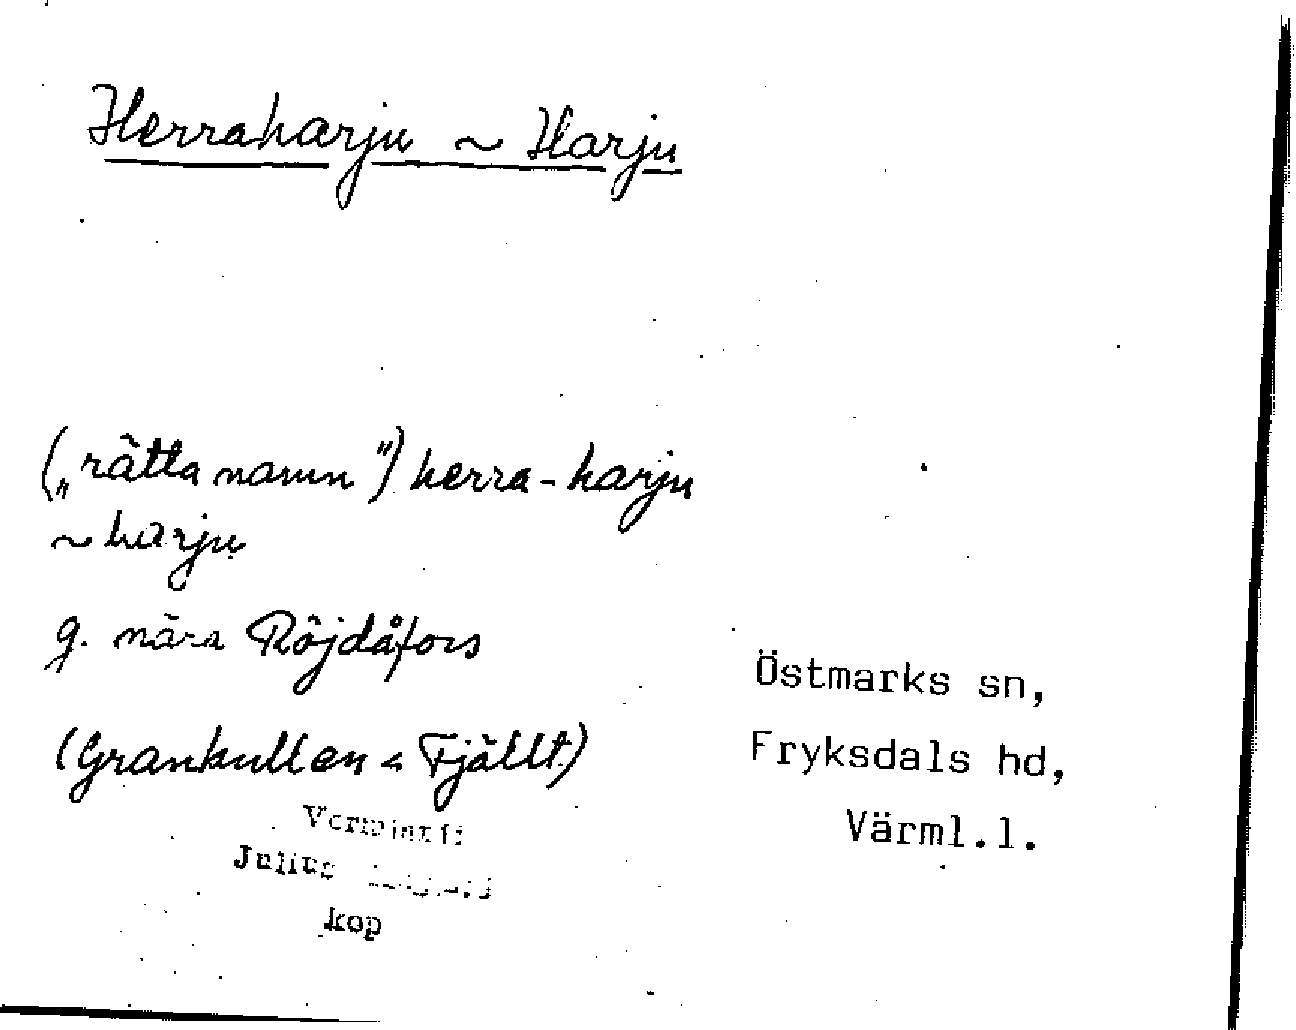 Herraharju ~ Harju
(„rätta namn") herra-harju
~ harju
g. nära Röjdåfors
(Grankullen < Fjällt)
Östmarks sn,
Fryksdals hd,
Värml.l.
Julius
kop